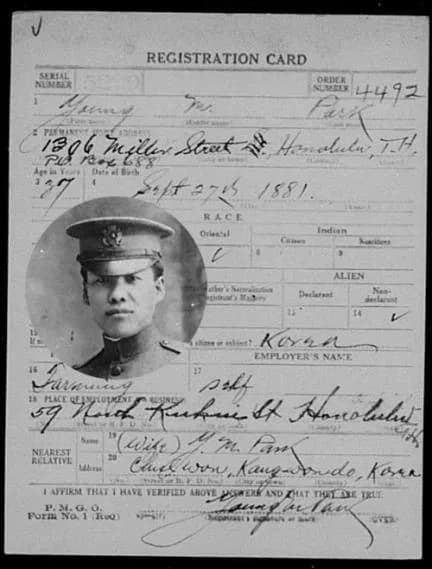 REGISTRATION CARD
SERIAL NUMBER
ORDER NUMBER 4492
1 Young M. Park
2 PERMANENT HOME ADDRESS
1306 Miller Street, Honolulu, T.H.
P.O. Box 688
Age in Years Date of Birth
3 37 4 Sept 27th 1881.
RACE
Oriental Indian
Citizen Noncitizen
✓ 8 9
ALIEN
Father's Naturalization Registrant's Majority Declarant Non-declarant
13 14 ✓
15
citizen or subject? Korea
EMPLOYER'S NAME
16 17
Farming self
18 PLACE OF EMPLOYMENT OR BUSINESS
59 North St. Honolulu
NEAREST RELATIVE
Name 19 (Wife) Y. M. Park
Address 20 Chulwon, Kangwondo, Korea
I AFFIRM THAT I HAVE VERIFIED ABOVE ANSWERS AND THAT THEY ARE TRUE.
P. M. G. O.
Form No. 1 (Red) Young M Park
(Registrant's signature or mark) (OVER)